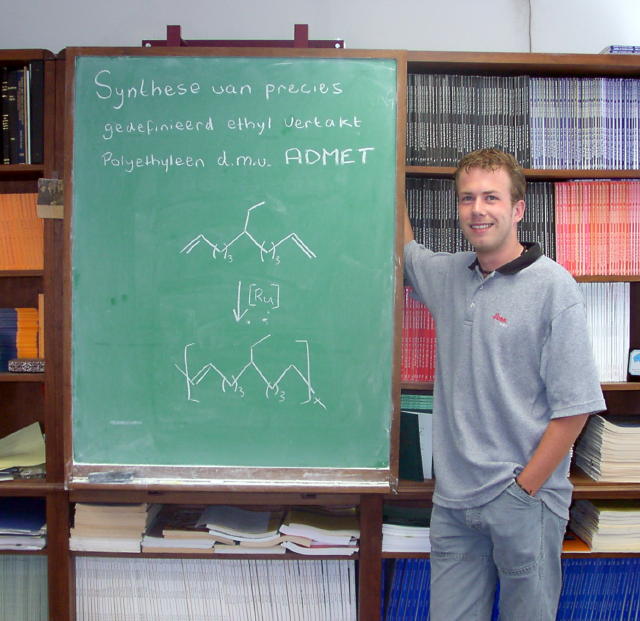 Synthese van precies
gedefinieerd ethyl vertakt
Polyethyleen d.m.v. ADMET
3
3
[Ru]
3
3
x